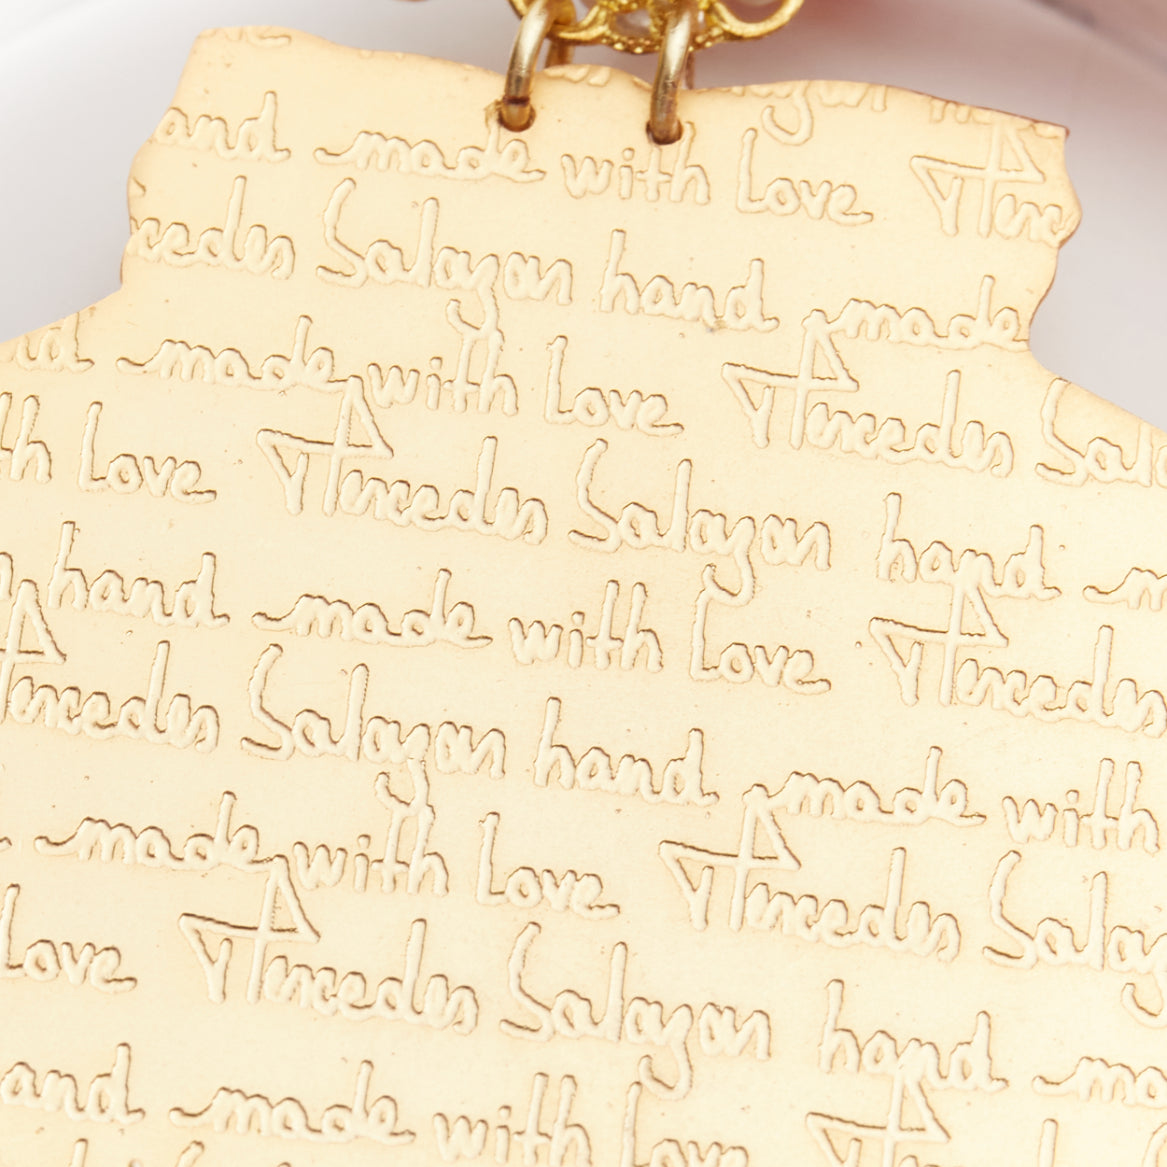 and made with Love
Mercedes Salazar hand made
made with Love Mercedes
Love Mercedes Salazar hand
hand made with Love Mercedes
Mercedes Salazar hand made with
made with Love Mercedes
Love Mercedes Salazar hand
hand made with Love